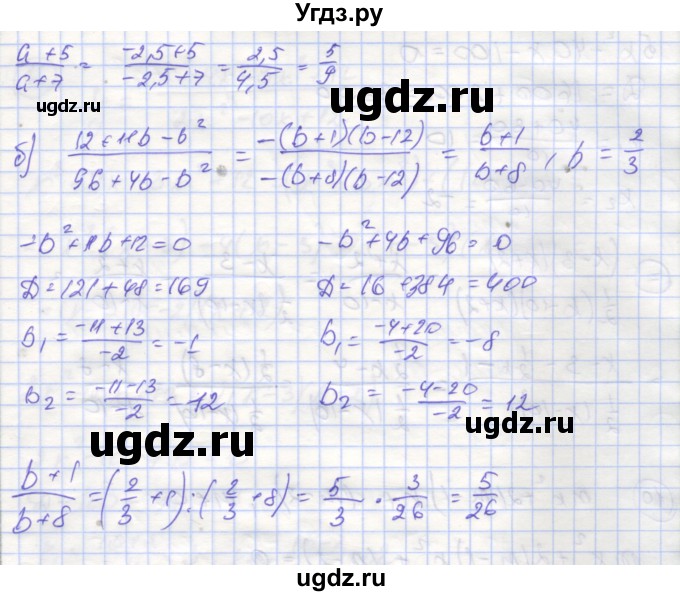 Угдз.ру
(a+5)/(a+7) = (-2,5+5)/(-2,5+7) = 2,5/4,5 = 5/9
ugdz.ru
ugdz.ru
б) (12+11b-b²)/(96+4b-b²) = (-(b+1)(b-12))/(-(b+8)(b-12)) = (b+1)/(b+8), b = 2/3
-b²+11b+12=0
-b²+4b+96=0
D=121+48=169
D=16+384=400
ugdz.ru
b₁=(-11+13)/(-2)=-1
b₁=(-4+20)/(-2)=-8
b₂=(-11-13)/(-2)=12
b₂=(-4-20)/(-2)=12
ugdz.ru
ugdz.ru
(b+1)/(b+8)=(2/3+1):(2/3+8)=5/3·3/26=5/26
ugdz.ru
ugdz.ru